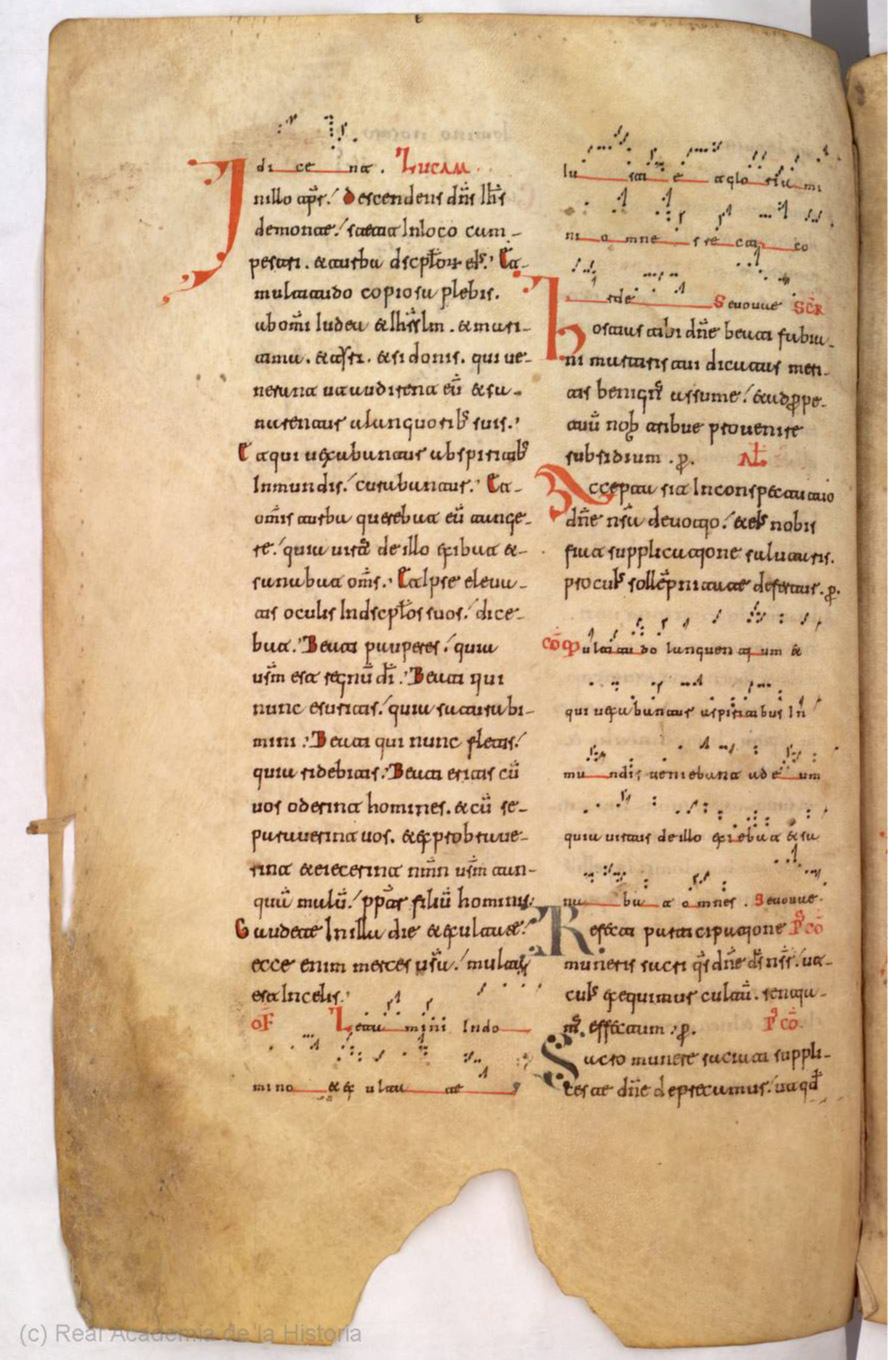 di ce na . Lucam
In illo tp̄r. Descendens dn̄s Ih̄s
demonte stetit Inloco cam-
pestri. & turba discpl̄or eĪ. Et
multitudo copiosa plebis.
ab om̄i Iudea & Ihrslm̄. & mari-
tima. & tyri. & sidonis. qui ue-
nerunt ut audirent eū & sa-
narentur alanguorib; suis.
Et qui uexabantur abspiritib;
Inmundis. curabantur. Et
om̄is turba querebat eū tange-
re. quia uirt̄ deillo exibat &
sanabat om̄s. Et Ipse eleua-
tis oculis Indiscpl̄os suos. dice-
bat. Beati pauperes. quia
ur̄m est regnū dī. Beati qui
nunc esuritis. quia saturabi-
mini. Beati qui nunc fletis.
quia ridebitis. Beati eritis cū
uos oderint homines. & cū se-
parauerint uos. & exprobraue-
rint & eiecerint nm̄n ur̄m tan-
quā malū. pp̄ter filiū hominis.
Gaudete In illa die & exultate.
ecce enim merces ur̄a multa
est Incelis.
OF Letamini Indo
mino & ex ulta te
iu sti et glo ria mi
ni o mnes re cti co
rde Seuouae SCR
Hostias tibi dn̄e beati fabia-
ni martiris tui dicatas meri-
tis benign̄ assume. & adppe-
tuū nob̄ tribue prouenire
subsidium. p. AL
Accepta sit Inconspectu tuo
dn̄e nr̄a deuotio. & eī nobis
fiat supplicatione salutaris.
pro cuī sollēpnitate defertur. p.
CŌ Multitudo languentium &
qui uexabantur aspiritibus In
mu ndis ueniebant ad e um
quia uirtus deillo exiebat & sa
na ba t omnes. Seuouae
Refecti participatione P CŌ
muneris sacri qs̄ dn̄e ds̄ nr̄. ut
cuī exequimur cultū. sentia-
m̄. effectum. p. P CŌ.
Sacro munere satiati suppli-
ces te dn̄e deprecamur. ut qd̄
(c) Real Academia de la Historia